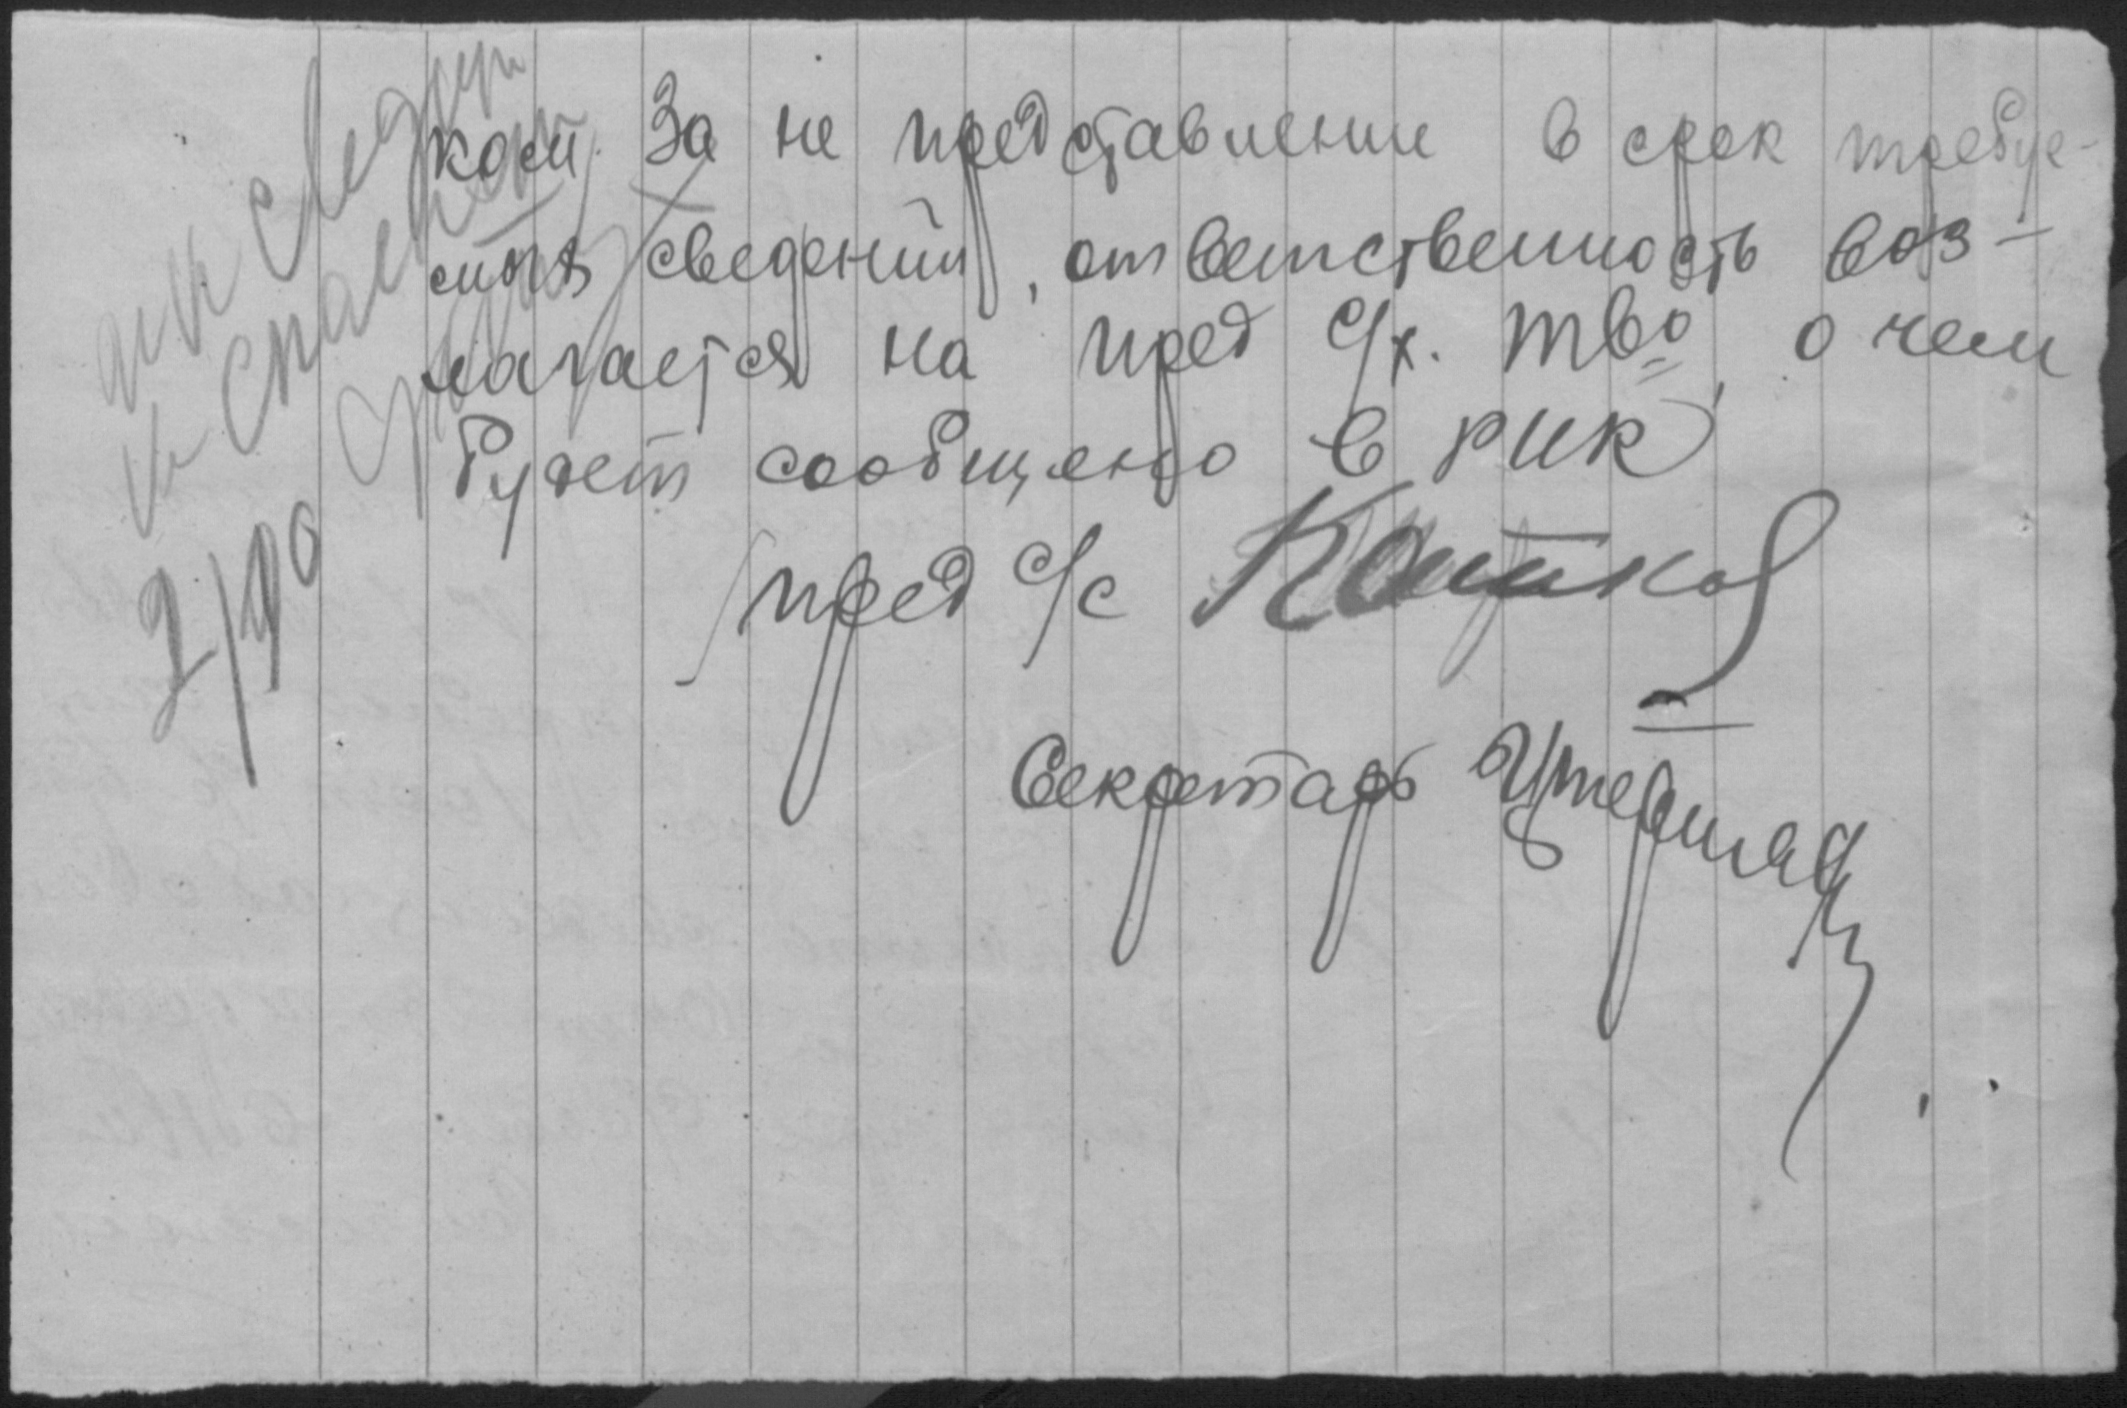 кой. За не представление в срок требуе-
мых сведений, ответственность воз-
лагается на пред с/х. тво, о чем
будет сообщено в рик
пред с/с Кошков
Секретарь
2/90